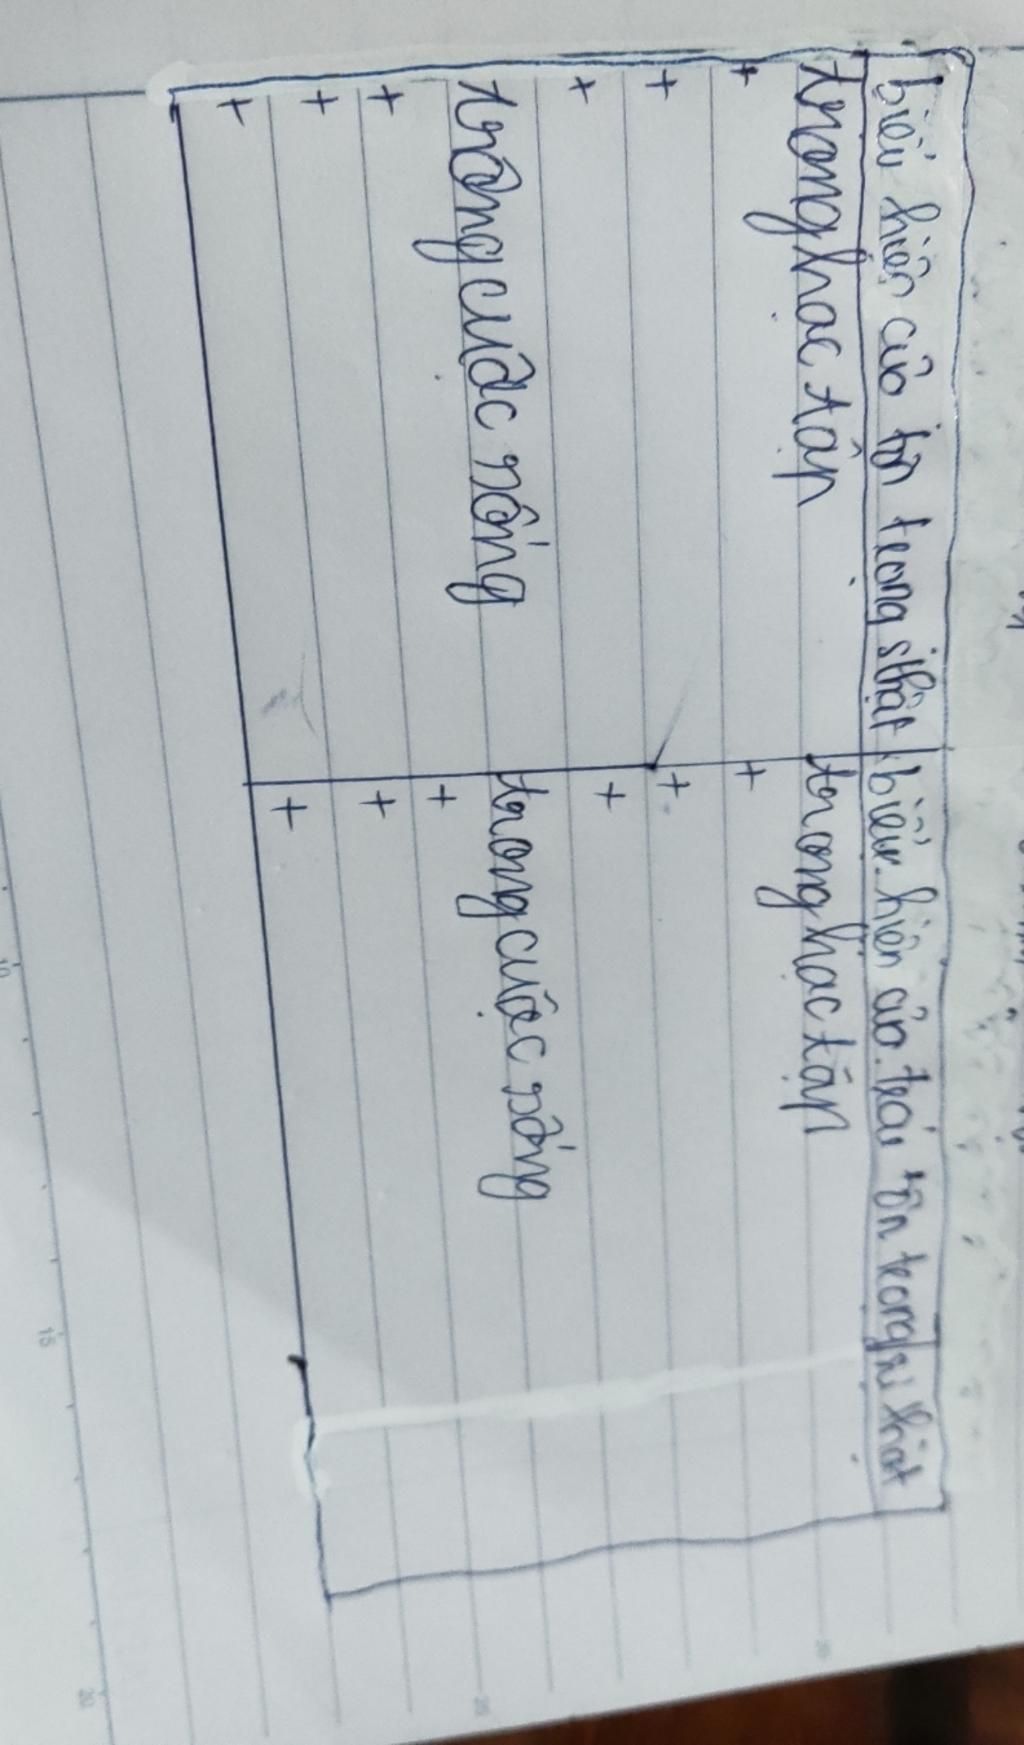 biểu hiện của tôn trọng sự thật
biểu hiện của trái tôn trọng sự thật
trong học tập
trong học tập
+
+
+
+
+
+
trong cuộc sống
trong cuộc sống
+
+
+
+
+
+